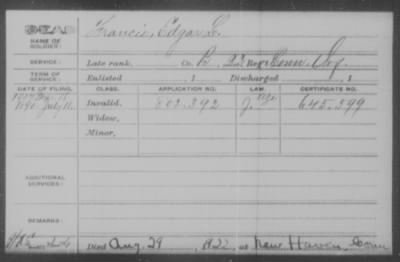 DEAD
NAME OF SOLDIER: Francis, Edgar L.
SERVICE: Late rank, Co. B, 22 Reg't Conn. Inf.
TERM OF SERVICE: Enlisted , 1 Discharged , 1
DATE OF FILING. CLASS. APPLICATION NO. LAW. CERTIFICATE NO.
1890 July 11. Invalid, 802.392 645.599
Widow,
Minor,
ADDITIONAL SERVICES:
REMARKS:
Died Aug. 29, 1922, at New Haven, Conn